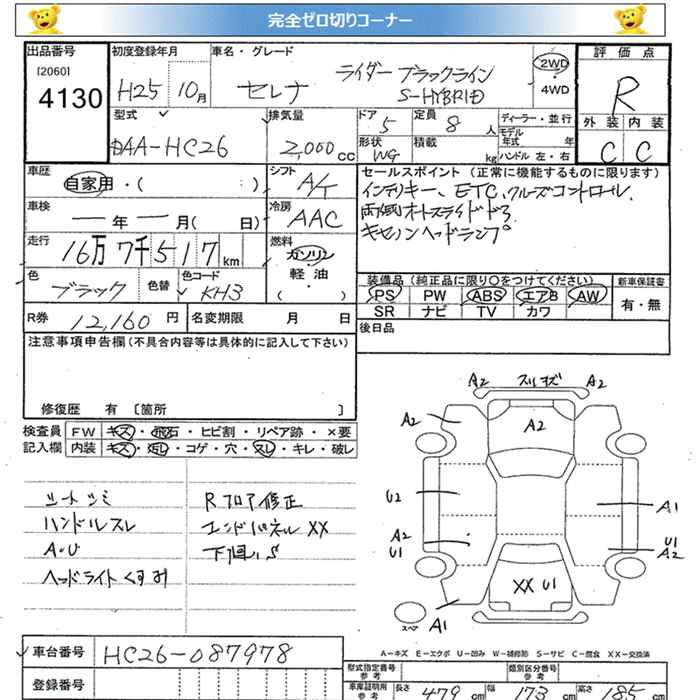 完全ゼロ切りコーナー
出品番号 初度登録年月 車名・グレード 評価点
[2060] 4130 H25 10月 セレナ ライダー ブラックライン S-HYBRID 2WD 4WD R
型式 排気量 ドア 定員 ディーラー・並行 外装 内装
DAA-HC26 2,000cc 5 8人 モデル年式 年 C C
形状 WG 積載 kg ハンドル 左・右
車歴 シフト セールスポイント (正常に機能するものに限ります)
自家用・( : ) A/T インテリキー、ETC、クルーズコントロール、
車検 冷房 両側オートスライドドア
ー年ー月( 日) AAC キセノンヘッドランプ
走行 燃料
16万7千517km ガソリン 軽油 ・( )
色 色替 色コード 装備品(純正品に限り〇をつけてください) 新車保証書
ブラック KH3 PS PW ABS エアB AW 有・無
SR ナビ TV カワ
R券 12,160円 名変期限 月 日 後日品
注意事項申告欄(不具合内容等は具体的に記入して下さい)
修復歴 有 〔箇所 〕
検査員 FW キズ・飛石・ヒビ割・リペア跡・×要
記入欄 内装 キズ・汚レ・コゲ・穴・スレ・キレ・破レ
シートシミ Rフロア修正
ハンドルスレ エンドパネルXX
A・U 下廻りS
ヘッドライトくすみ
A2 スリキズ A2
A2 A2 A2
U2 A1
A2 U1 U1 A2
XX U1
スペア A1
A-キズ E-エクボ U-凹み W-補修跡 S-サビ C-腐食 XX-交換済
車台番号 HC26-087978
登録番号
型式指定番号 参考 類別区分番号 参考
車庫証明用 参考 長さ 479cm 幅 173cm 高さ 185cm